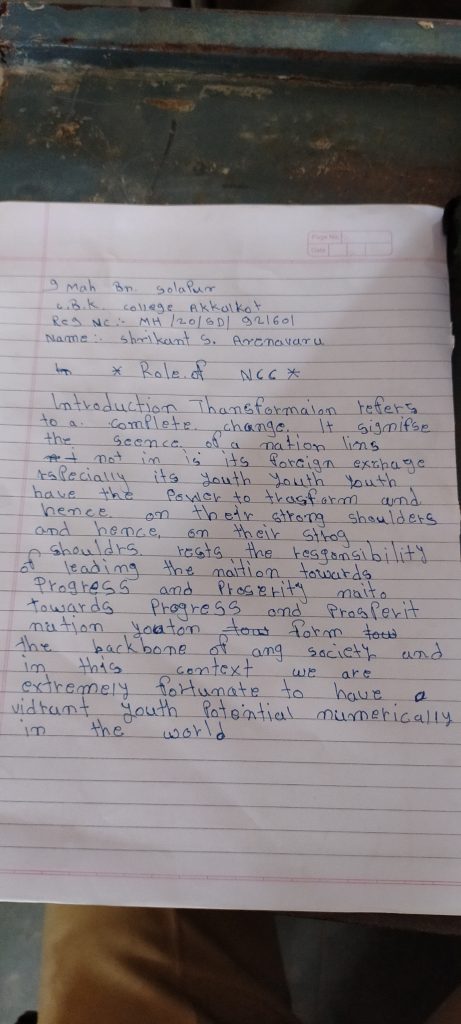 Page No.
Date
9 Mah Bn. Solapur
C.B.K. college Akkalkot
Reg No :- MH /20/SD/ 921601
Name :- Shrikant S. Arenavaru
* Role of NCC *
Introduction Thansformaion refers
to a complete change. It signifse
the seence of a nation lims
not in is its foreign exchage
especially its youth youth youth
have the Power to trasform and
hence on their strong shoulders
and hence, on their strog
shouldrs. rests the responsibility
of leading the naition towards
Progress and Proserity naito
towards Progress and Prosperit
nution youton form
the backbone of ang society and
in this context we are
extremely fortunate to have a
vidrant youth Potential numerically
in the world